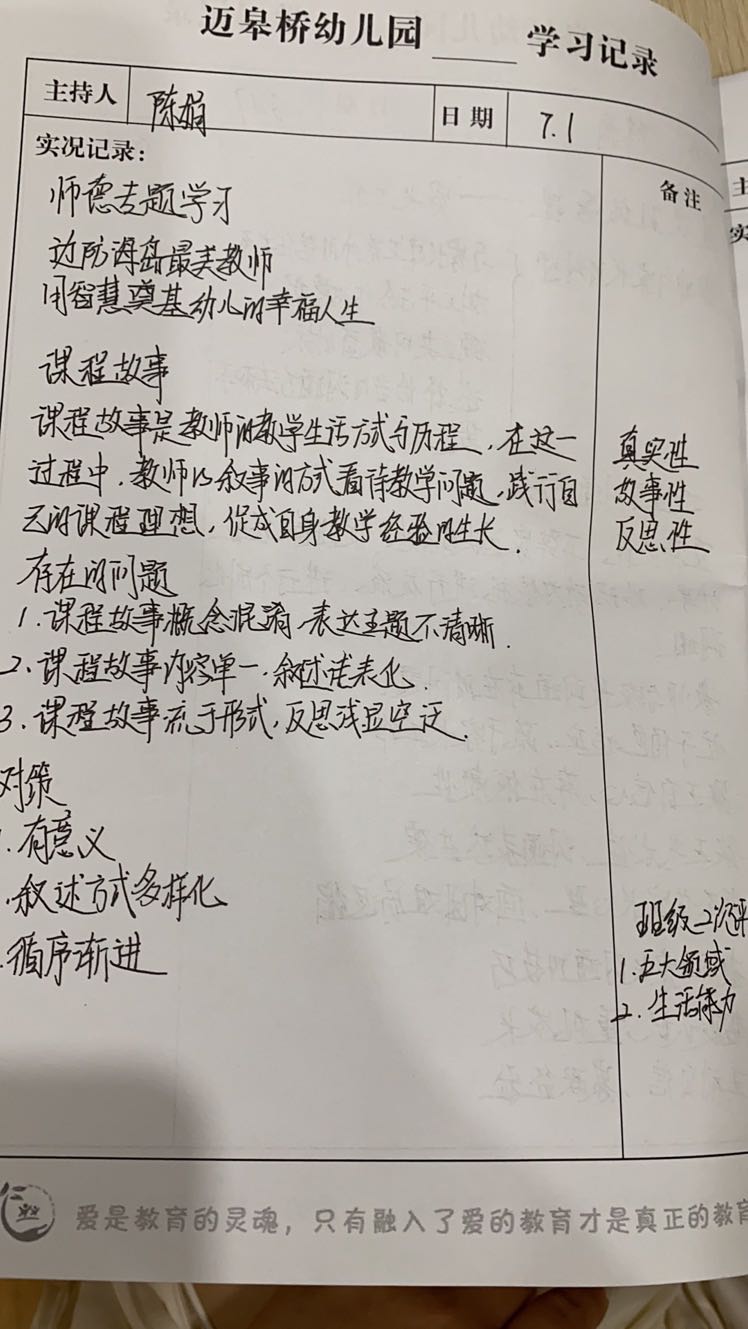 迈皋桥幼儿园 ____ 学习记录
主持人 陈娟 日期 7.1
实况记录：
备注
师德专题学习
边防海岛最美教师
用智慧奠基幼儿的幸福人生
课程故事
课程故事是教师的教学生活方式与历程，在这一
过程中，教师以叙事的方式看待教学问题，践行自
己的课程理想，促成自身教学经验的生长．
真实性
故事性
反思性
存在的问题
1．课程故事概念混淆，表达主题不清晰．
2．课程故事内容单一，叙述表化．
3．课程故事流于形式，反思浅显空泛．
对策
．有意义
．叙述方式多样化
．循序渐进
班级二次评
1．五大领域
2．生活能力
爱是教育的灵魂，只有融入了爱的教育才是真正的教育
主
实